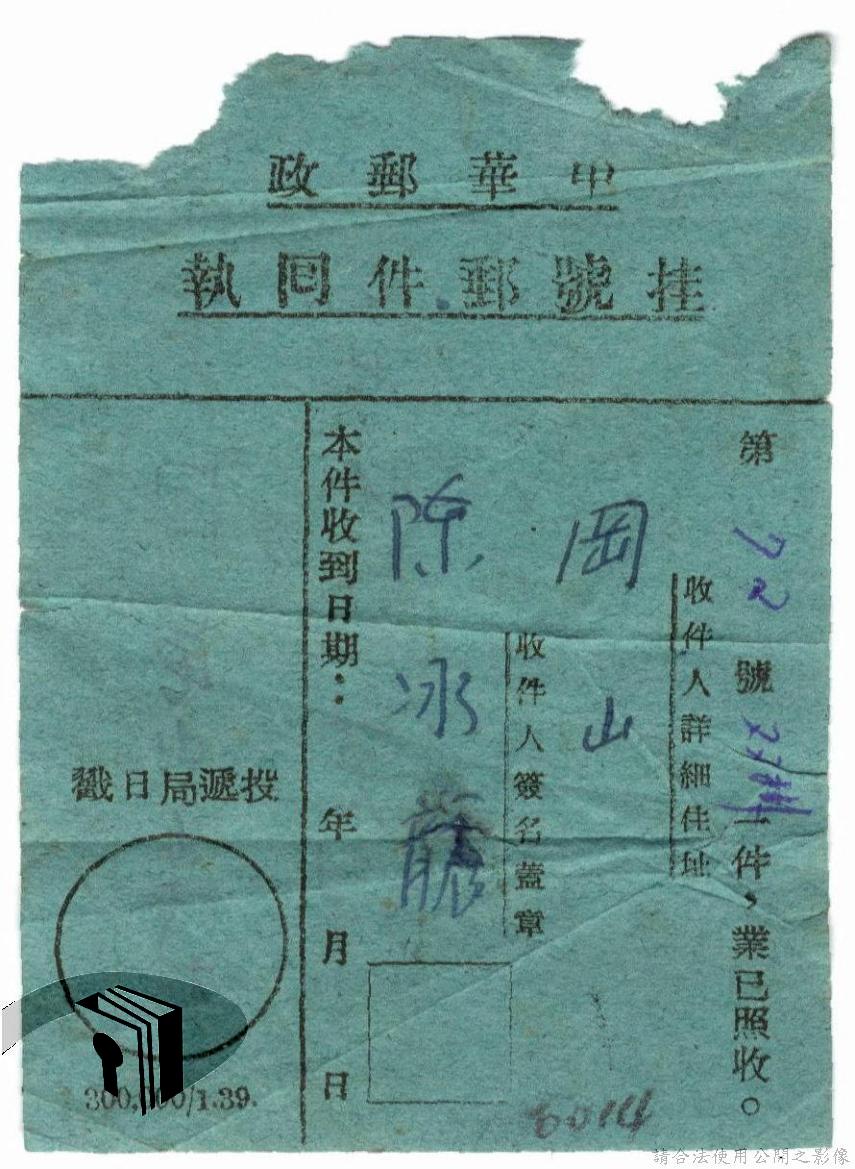 中華郵政
挂號郵件回執
第72號
一件，業已照收。
收件人詳細住址
岡山
收件人簽名蓋章
陳冰
本件收到日期：
年 月 日
投遞局日戳
300,000/1.39.
6014
請合法使用公開之影像